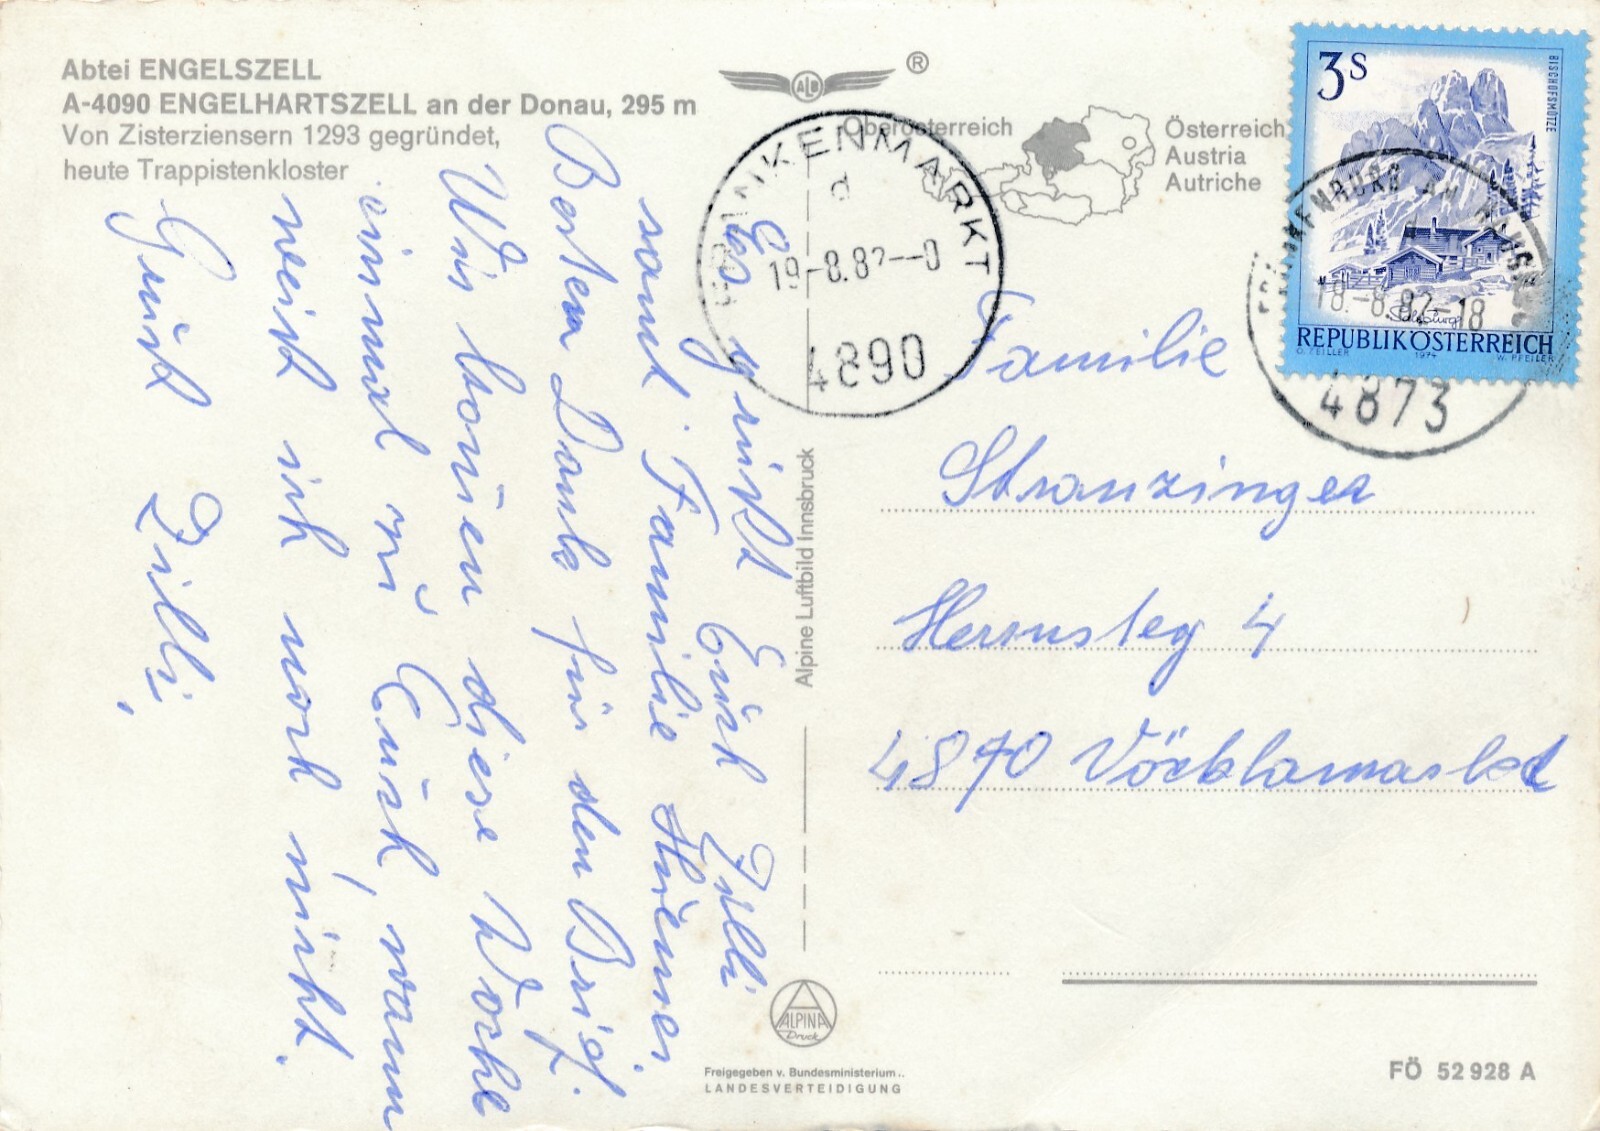 Abtei ENGELSZELL
A-4090 ENGELHARTSZELL an der Donau, 295 m
Von Zisterziensern 1293 gegründet,
heute Trappistenkloster
ALB
®
Oberösterreich
Österreich
Austria
Autriche
FRANKENMARKT
d
19.-8.82--0
4890
3 S
BISCHOFSMÜTZE
Salzburg
REPUBLIK ÖSTERREICH
O. ZEILLER 1974 W. PFEILER
FRANKENBURG AM HAUSRUCK
18.-8.82-18
4873
Es grüßt Euch Zilli
samt Familie
Besten Dank für den Brief.
Wir kommen diese Woche
einmal zu Euch, wann
weiß ich noch nicht.
Gruß Zilli,
Familie
Stranzinger
Hernsteg 4
4870 Vöcklamarkt
Alpine Luftbild Innsbruck
ALPINA
Druck
Freigegeben v. Bundesministerium..
LANDESVERTEIDIGUNG
FÖ 52 928 A